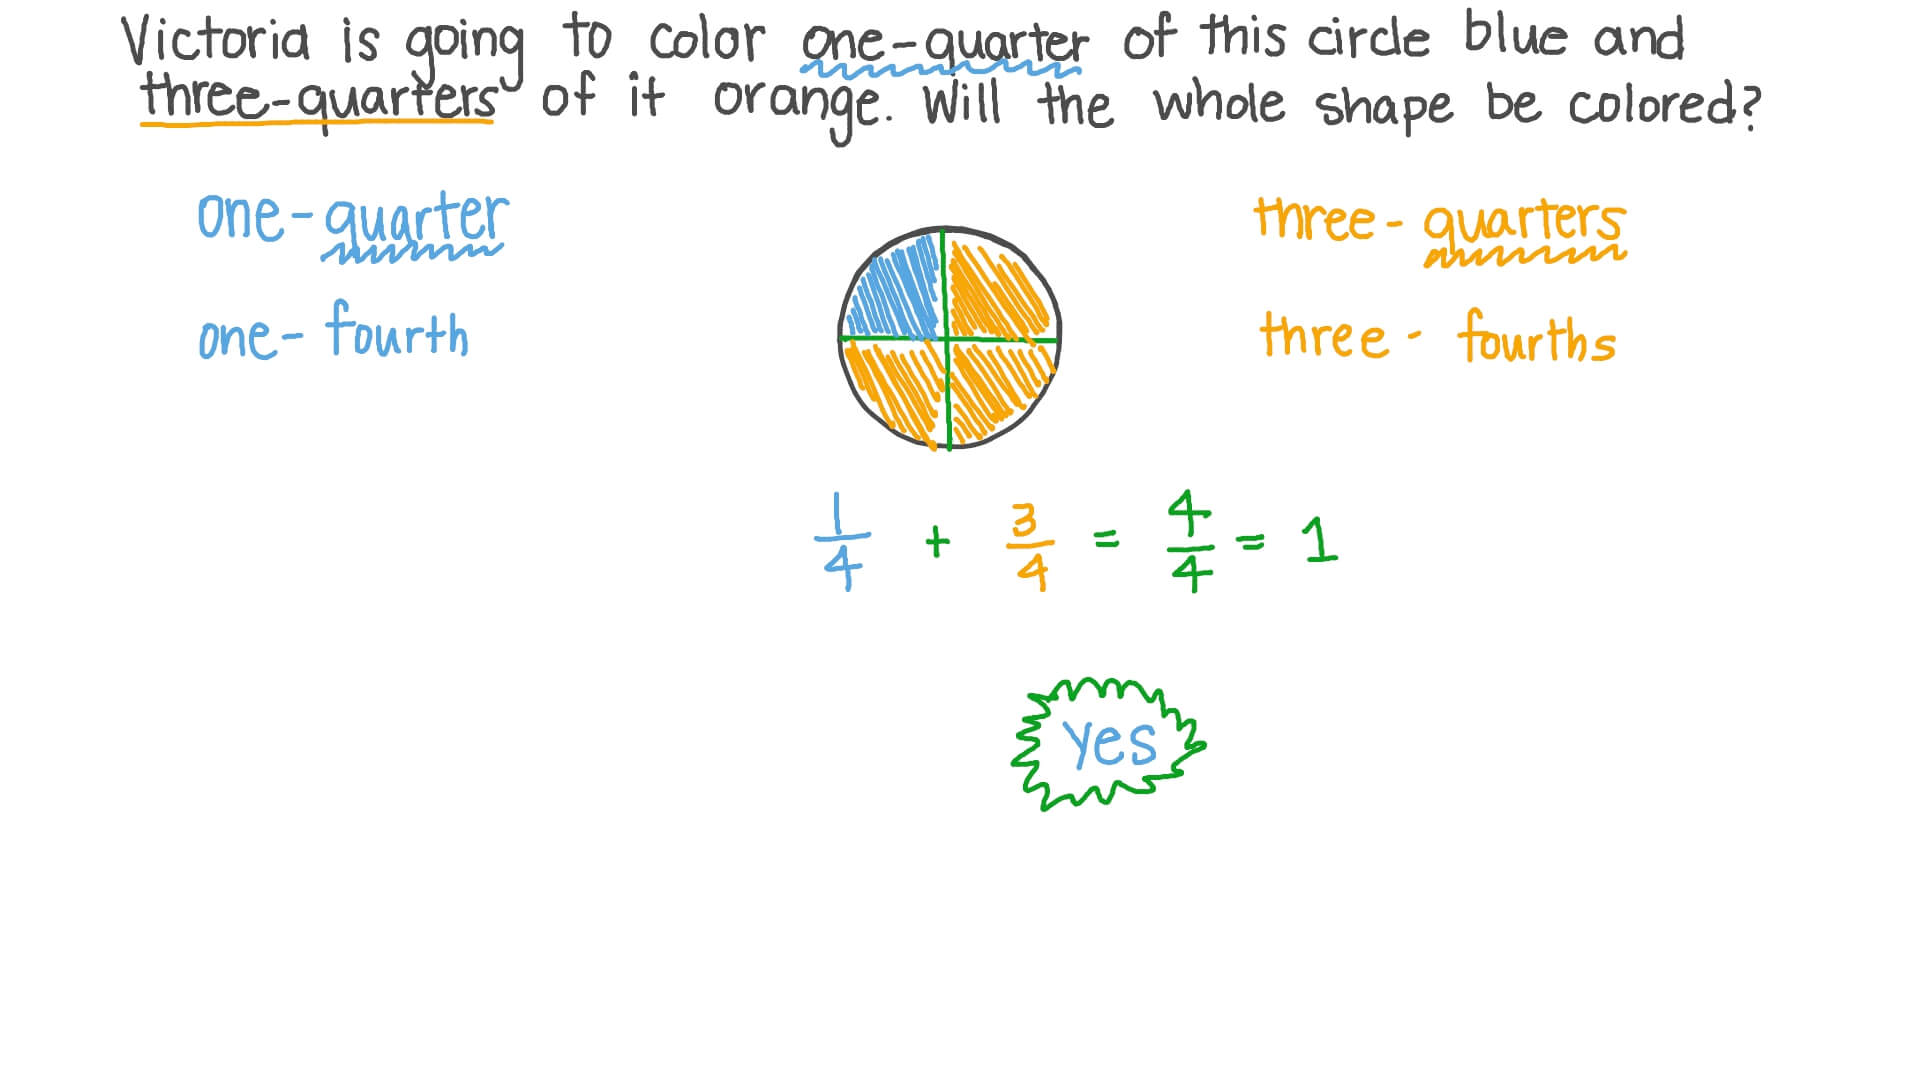 Victoria is going to color one-quarter of this circle blue and
three-quarters of it orange. Will the whole shape be colored?
one-quarter
three-quarters
one-fourth
three-fourths
1/4 + 3/4 = 4/4 = 1
yes